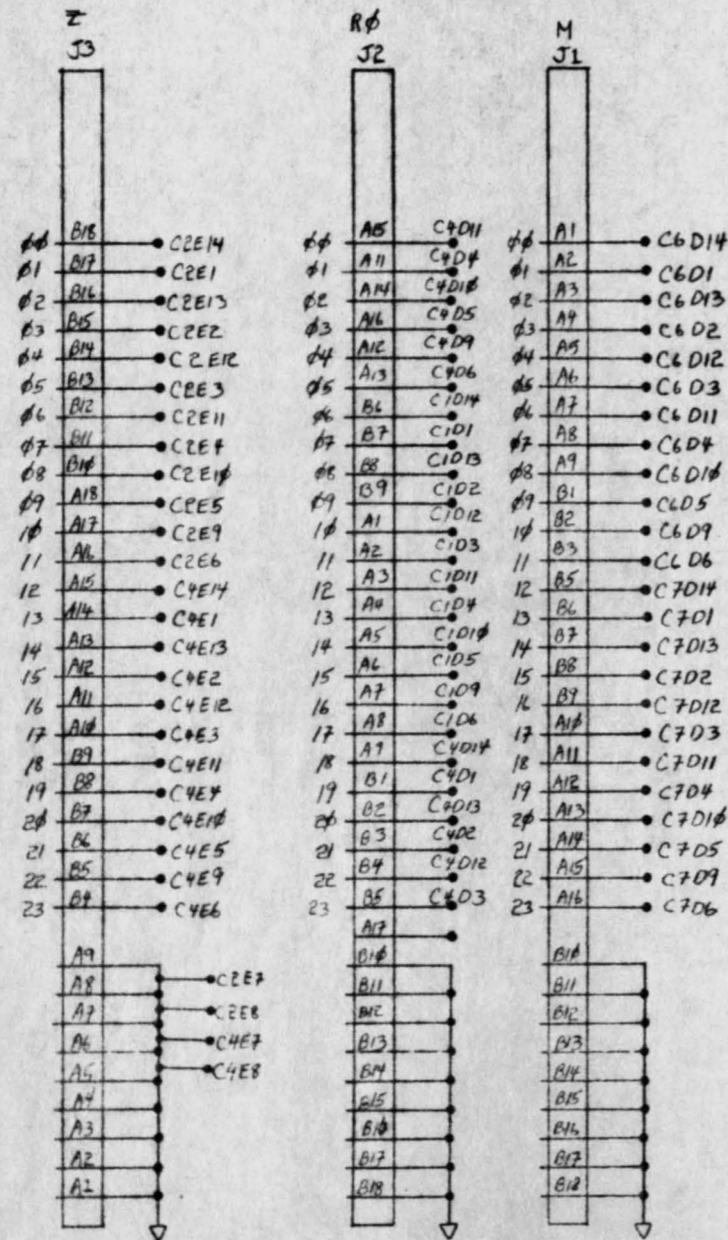 Z
J3
ØØ B18 C2E14
Ø1 B17 C2E1
Ø2 B16 C2E13
Ø3 B15 C2E2
Ø4 B14 C2E12
Ø5 B13 C2E3
Ø6 B12 C2E11
Ø7 B11 C2E4
Ø8 B1Ø C2E1Ø
Ø9 A18 C2E5
1Ø A17 C2E9
11 A16 C2E6
12 A15 C4E14
13 A14 C4E1
14 A13 C4E13
15 A12 C4E2
16 A11 C4E12
17 A1Ø C4E3
18 B9 C4E11
19 B8 C4E4
2Ø B7 C4E1Ø
21 B6 C4E5
22 B5 C4E9
23 B4 C4E6
A9
C2E7
A8
C2E8
A7
C4E7
A6
C4E8
A5
A4
A3
A2
A1
RØ
J2
ØØ A15 C4D11
Ø1 A11 C4D4
Ø2 A14 C4D1Ø
Ø3 A16 C4D5
Ø4 A12 C4D9
Ø5 A13 C4D6
Ø6 B6 C1D14
Ø7 B7 C1D1
Ø8 B8 C1D13
Ø9 B9 C1D2
1Ø A1 C1D12
11 A2 C1D3
12 A3 C1D11
13 A4 C1D4
14 A5 C1D1Ø
15 A6 C1D5
16 A7 C1D9
17 A8 C1D6
18 A9 C4D14
19 B1 C4D1
2Ø B2 C4D13
21 B3 C4D2
22 B4 C4D12
23 B5 C4D3
A17
B1Ø
B11
B12
B13
B14
B15
B17
B18
M
J1
ØØ A1 C6D14
Ø1 A2 C6D1
Ø2 A3 C6D13
Ø3 A4 C6D2
Ø4 A5 C6D12
Ø5 A6 C6D3
Ø6 A7 C6D11
Ø7 A8 C6D4
Ø8 A9 C6D1Ø
Ø9 B1 C6D5
1Ø B2 C6D9
11 B3 C6D6
12 B5 C7D14
13 B6 C7D1
14 B7 C7D13
15 B8 C7D2
16 B9 C7D12
17 A1Ø C7D3
18 A11 C7D11
19 A12 C7D4
2Ø A13 C7D1Ø
21 A14 C7D5
22 A15 C7D9
23 A16 C7D6
B1Ø
B11
B12
B13
B14
B15
B16
B17
B18